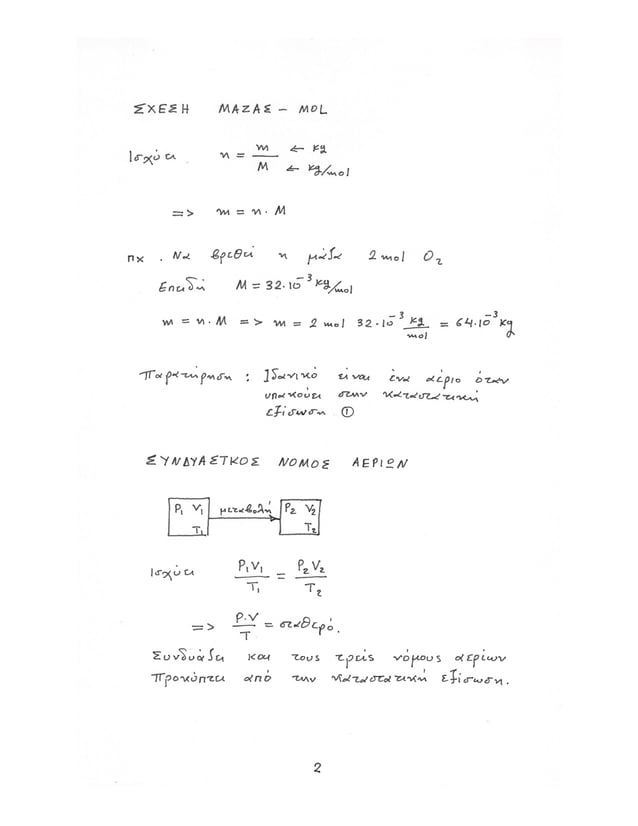 ΣΧΕΣΗ ΜΑΖΑΣ - MOL
Ισχύει n = m / M ← kg ← kg/mol
=> m = n · M
πχ. Να βρεθεί η μάζα 2 mol O₂
Επειδή M = 32·10⁻³ kg/mol
m = n·M => m = 2 mol 32·10⁻³ kg/mol = 64·10⁻³ kg
Παρατήρηση : Ιδανικό είναι ένα αέριο όταν
υπακούει στην καταστατική
εξίσωση ①
ΣΥΝΔΥΑΣΤΚΟΣ ΝΟΜΟΣ ΑΕΡΙΩΝ
P₁ V₁ T₁ μεταβολή P₂ V₂ T₂
Ισχύει P₁V₁ / T₁ = P₂V₂ / T₂
=> P·V / T = σταθερό.
Συνδυάζει και τους τρείς νόμους αερίων
Προκύπτει από την καταστατική εξίσωση.
2